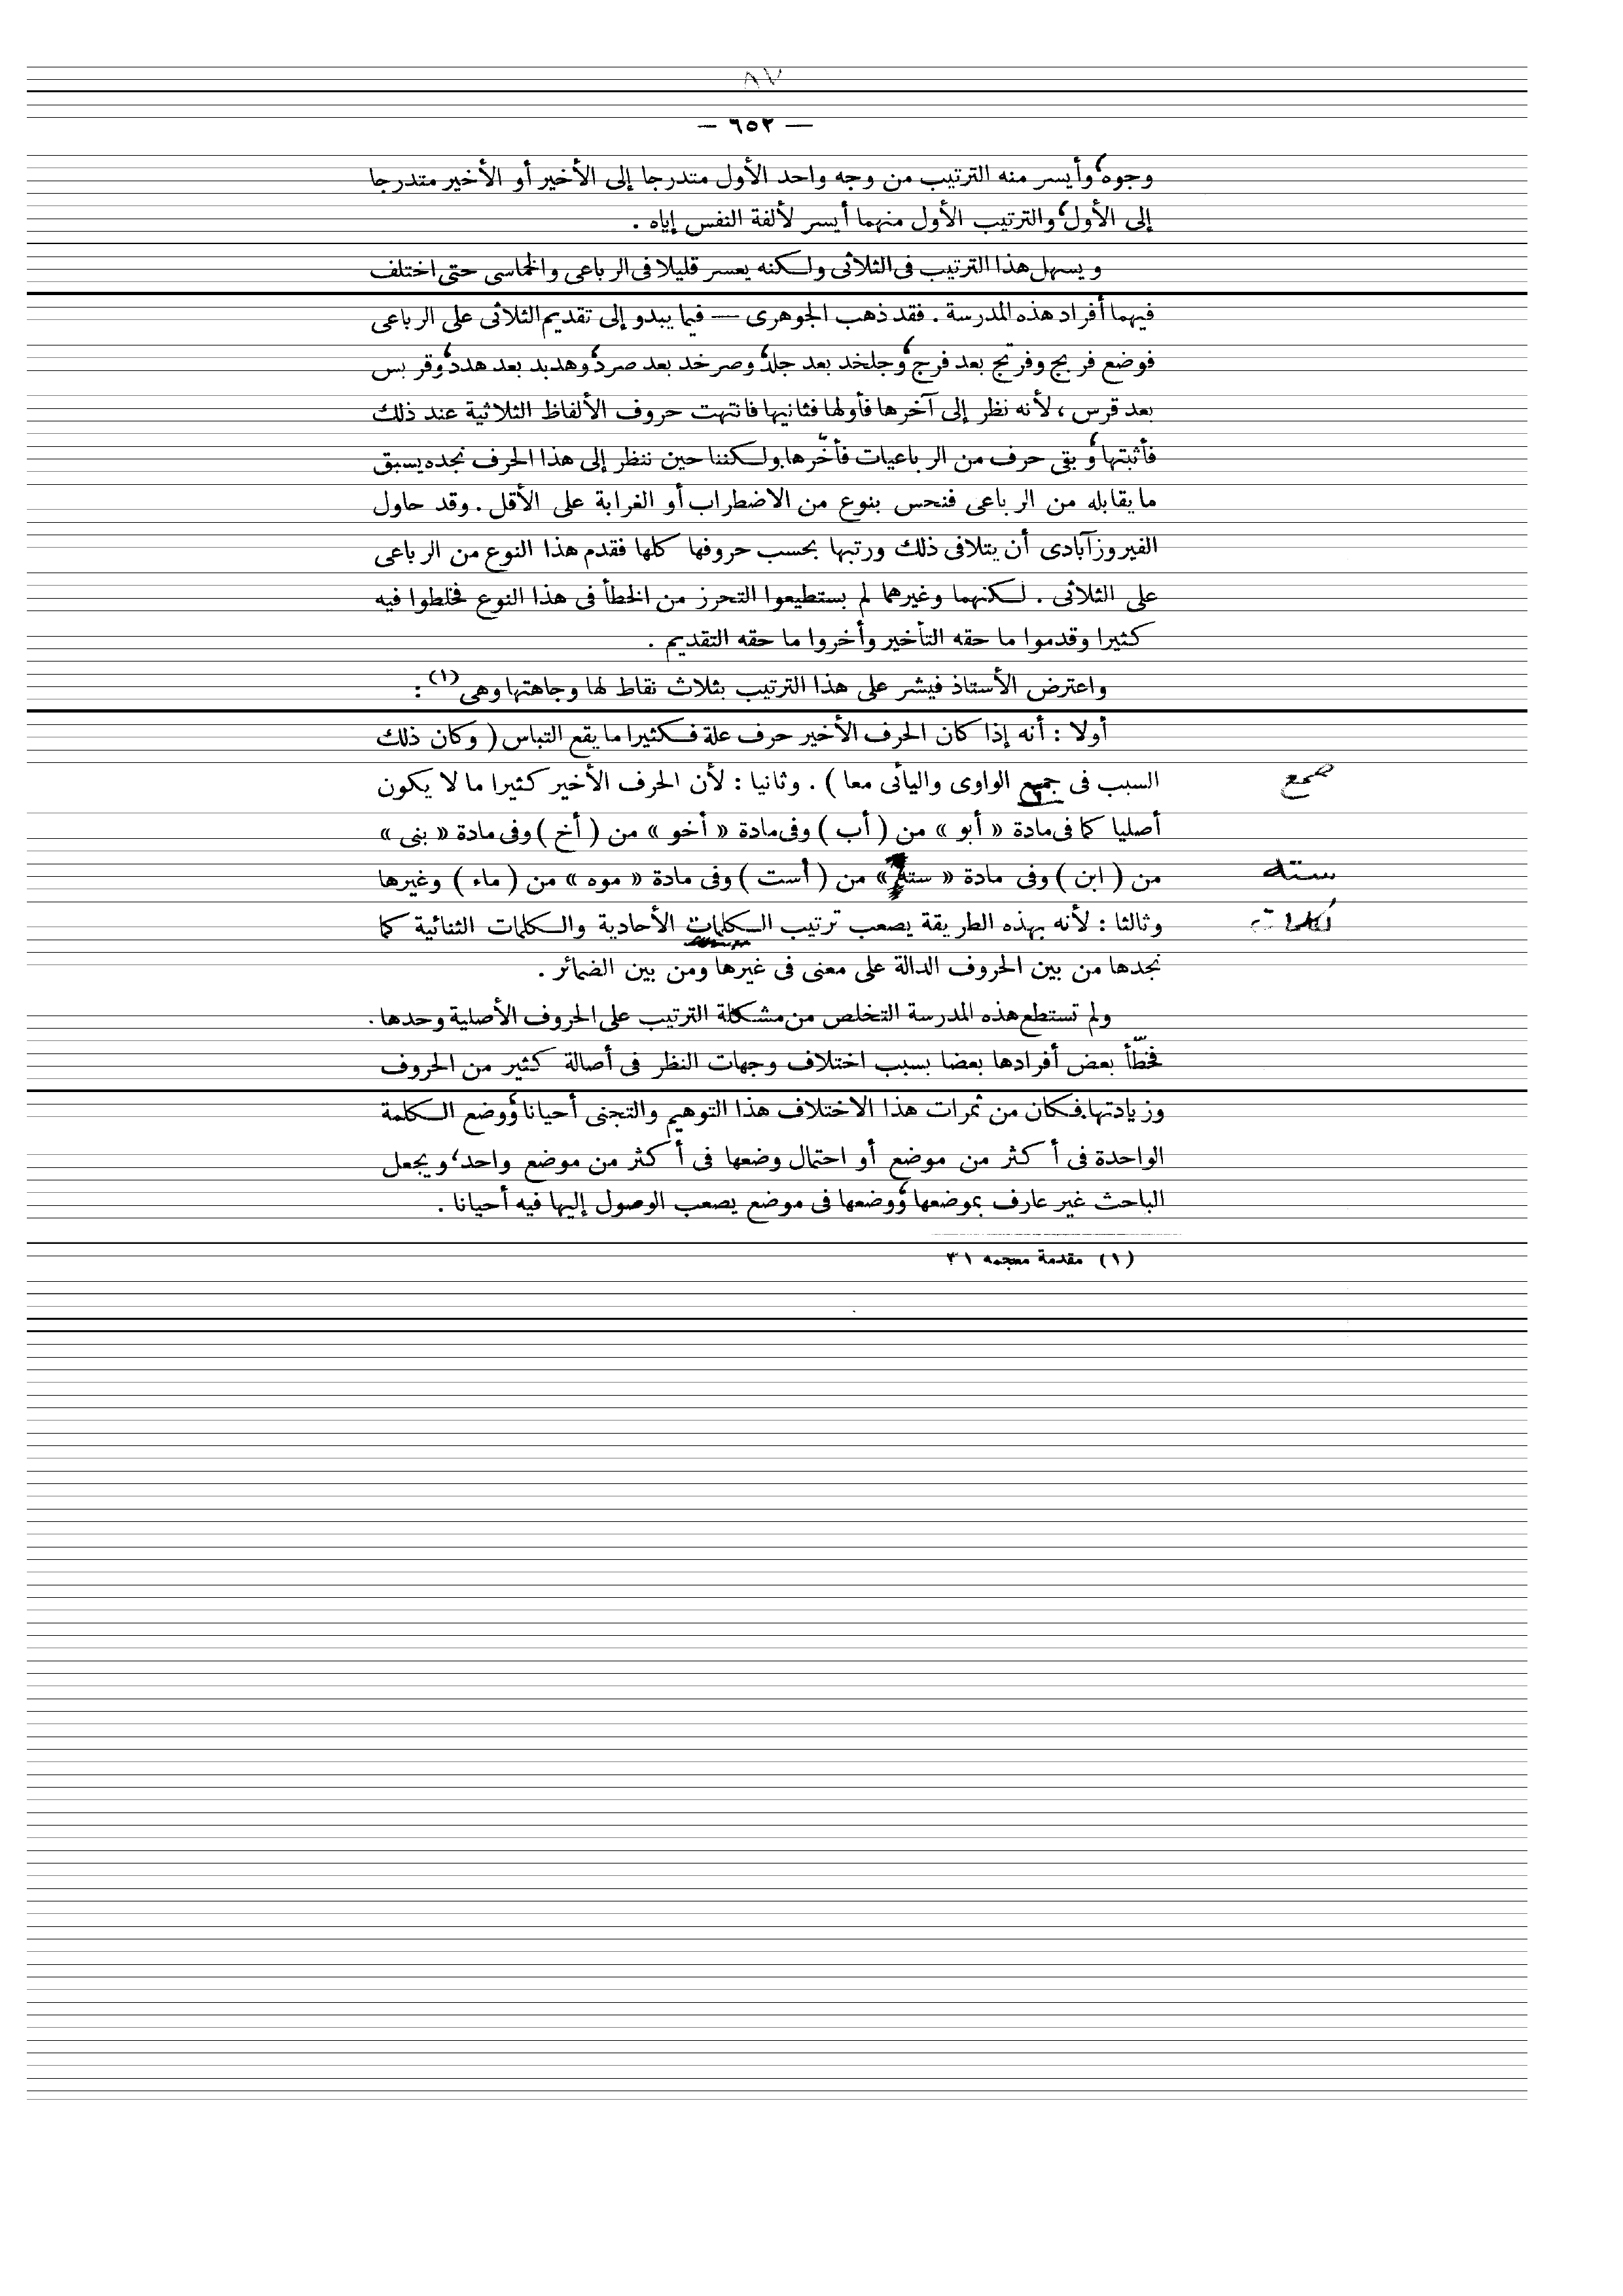 ٨٧
— ٦٥٢ —
وجوه، وأيسر منه الترتيب من وجه واحد الأول متدرجا إلى الأخير أو الأخير متدرجا
إلى الأول، والترتيب الأول منهما أيسر لألفة النفس إياه .
ويسهل هذا الترتيب فى الثلاثى ولكنه يعسر قليلا فى الرباعى والخماسى حتى اختلف
فيهما أفراد هذه المدرسة . فقد ذهب الجوهرى — فيما يبدو إلى تقديم الثلاثى على الرباعى
فوضع فربج وفرتج بعد فرج، وجلخد بعد جلد، وصرخد بعد صرد، وهدبد بعد هدد، وقربس
بعد قرس ، لأنه نظر إلى آخرها فأولها فثانيها فانتهت حروف الألفاظ الثلاثية عند ذلك
فأثبتها، وبقى حرف من الرباعيات فأخّرها. ولكننا حين ننظر إلى هذا الحرف نجده يسبق
ما يقابله من الرباعى فنحس بنوع من الاضطراب أو الغرابة على الأقل . وقد حاول
الفيروزآبادى أن يتلافى ذلك ورتبها بحسب حروفها كلها فقدم هذا النوع من الرباعى
على الثلاثى . لكنهما وغيرهما لم يستطيعوا التحرز من الخطأ فى هذا النوع فخلطوا فيه
كثيرا وقدموا ما حقه التأخير وأخروا ما حقه التقديم .
واعترض الأستاذ فيشر على هذا الترتيب بثلاث نقاط لها وجاهتها وهى (١) :
أولا : أنه إذا كان الحرف الأخير حرف علة فكثيرا ما يقع التباس ( وكان ذلك
السبب فى جميع الواوى واليائى معا ) . وثانيا : لأن الحرف الأخير كثيرا ما لا يكون
أصليا كما فى مادة « أبو » من ( أب ) وفى مادة « أخو » من ( أخ ) وفى مادة « بنى »
من ( ابن ) وفى مادة « سته » من ( أست ) وفى مادة « موه » من ( ماء ) وغيرها
سته
وثالثا : لأنه بهذه الطريقة يصعب ترتيب الكلمات الأحادية والكلمات الثنائية كما
نجدها من بين الحروف الدالة على معنى فى غيرها ومن بين الضمائر .
ولم تستطع هذه المدرسة التخلص من مشكلة الترتيب على الحروف الأصلية وحدها .
فخطّأ بعض أفرادها بعضا بسبب اختلاف وجهات النظر فى أصالة كثير من الحروف
وزيادتها. فكان من ثمرات هذا الاختلاف هذا التوهيم والتجنى أحيانا، ووضع الكلمة
الواحدة فى أكثر من موضع أو احتمال وضعها فى أكثر من موضع واحد، ويجعل
الباحث غير عارف بموضعها، ووضعها فى موضع يصعب الوصول إليها فيه أحيانا .
(١) مقدمة معجمه ٣١